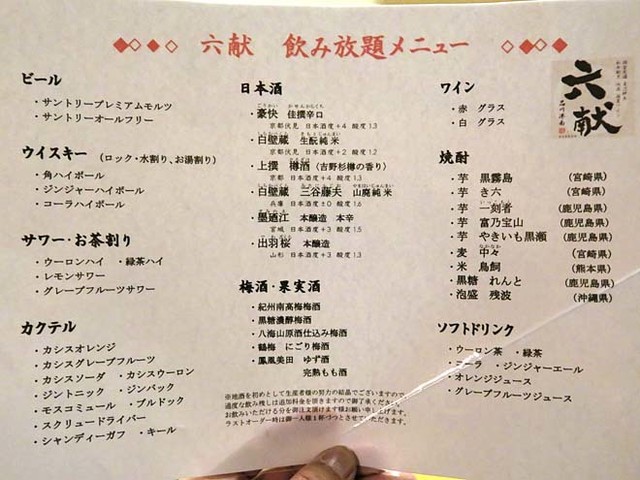 六献 飲み放題メニュー
ビール
・サントリープレミアムモルツ
・サントリーオールフリー
ウイスキー (ロック・水割り、お湯割り)
・角ハイボール
・ジンジャーハイボール
・コーラハイボール
サワー・お茶割り
・ウーロンハイ ・緑茶ハイ
・レモンサワー
・グレープフルーツサワー
カクテル
・カシスオレンジ
・カシスグレープフルーツ
・カシスソーダ ・カシスウーロン
・ジントニック ・ジンバック
・モスコミュール ・ブルドック
・スクリュードライバー
・シャンディーガフ ・キール
日本酒
・豪快 佳撰辛口
京都伏見 日本酒度+4 酸度1.3
・白壁蔵 生酛純米
京都伏見 日本酒度+2 酸度1.2
・上撰 樽酒(吉野杉樽の香り)
京都 日本酒度+4 酸度1.3
・白壁蔵 三谷藤夫 山廃純米
兵庫 日本酒度±0 酸度1.6
・墨廼江 本醸造 本辛
宮城 日本酒度+3 酸度1.5
・出羽桜 本醸造
山形 日本酒度+3 酸度1.3
梅酒・果実酒
・紀州南高梅梅酒
・黒糖濃醇梅酒
・八海山原酒仕込み梅酒
・鶴梅 にごり梅酒
・鳳凰美田 ゆず酒
完熟もも酒
※地酒を初めとして生産者様の努力の結晶でございますので
過度な飲み残しは追加料金を頂きますのでご了承ください
お飲みいただける分を御注文頂けます様お願い申し上げます。
ラストオーダー時は御一人様1杯づつとさせていただきます。
ワイン
・赤 グラス
・白 グラス
焼酎
・芋 黒霧島 (宮崎県)
・芋 き六 (宮崎県)
・芋 一刻者 (鹿児島県)
・芋 富乃宝山 (鹿児島県)
・芋 やきいも黒瀬 (鹿児島県)
・麦 中々 (宮崎県)
・米 鳥飼 (熊本県)
・黒糖 れんと (鹿児島県)
・泡盛 残波 (沖縄県)
ソフトドリンク
・ウーロン茶 ・緑茶
・コーラ ・ジンジャーエール
・オレンジジュース
・グレープフルーツジュース
六献
品川港南